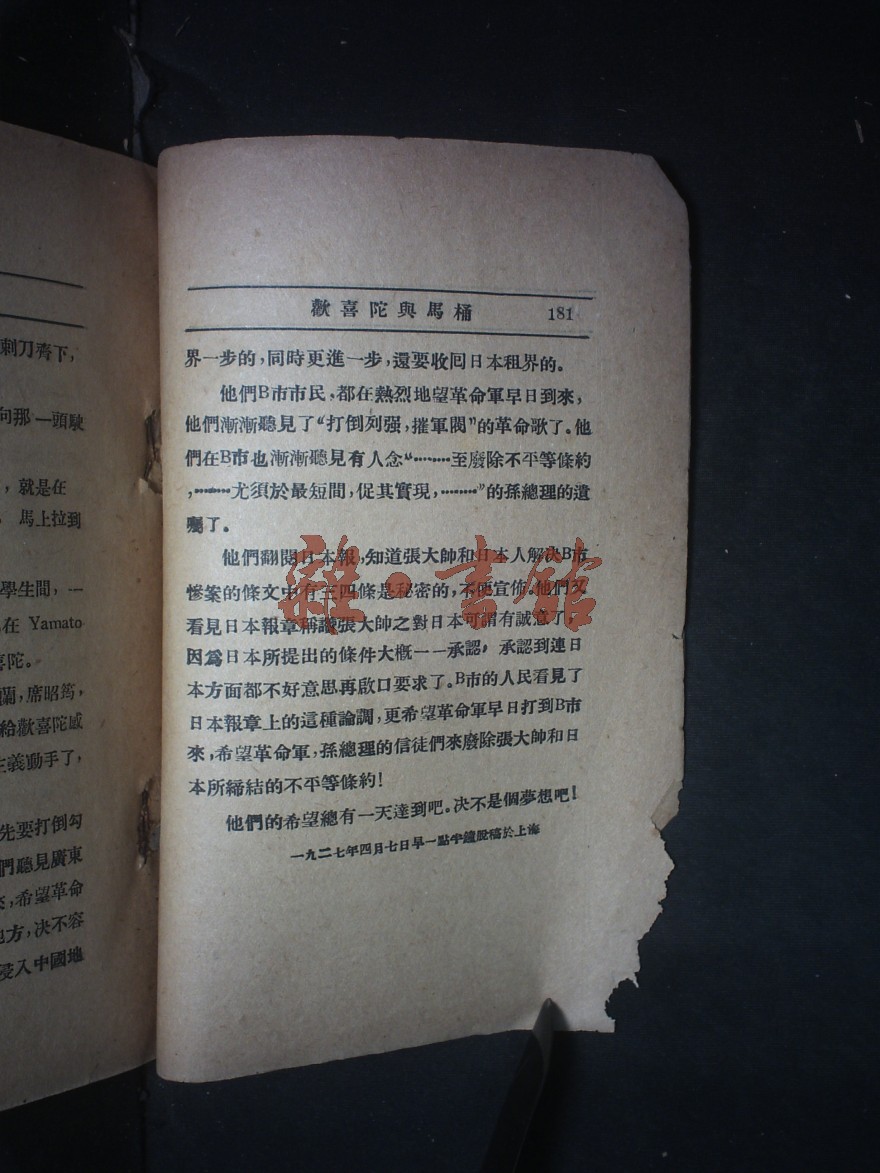 刺刀齊下,
向那一頭駛
,就是在
馬上拉到
學生間,一
在 Yamato
喜陀。
蘭,席昭筠,
給歡喜陀威
主義動手了,
先要打倒勾
們聽見廣東
來,希望革命
地方,决不容
侵入中國地
歡喜陀與馬桶 181
界一步的,同時更進一步,還要收囘日本租界的。
他們B市市民,都在熱烈地望革命軍早日到來,
他們漸漸聽見了“打倒列强,摧軍閥”的革命歌了。他
們在B市也漸漸聽見有人念“………至廢除不平等條約
,………尤須於最短間,促其實現,………”的孫總理的遺
囑了。
他們翻閱日本報,知道張大帥和日本人解决B市
慘案的條文中有三四條是秘密的,不便宣佈。他們又
看見日本報章稱讚張大帥之對日本可謂有誠意了,
因爲日本所提出的條件大槪一一承認,承認到連日
本方面都不好意思再啟口要求了。B市的人民看見了
日本報章上的這種論調,更希望革命軍早日打到B市
來,希望革命軍,孫總理的信徒們來廢除張大帥和日
本所締結的不平等條約!
他們的希望總有一天達到吧。决不是個夢想吧!
一九二七年四月七日早一點半鐘脫稿於上海
雜·書館